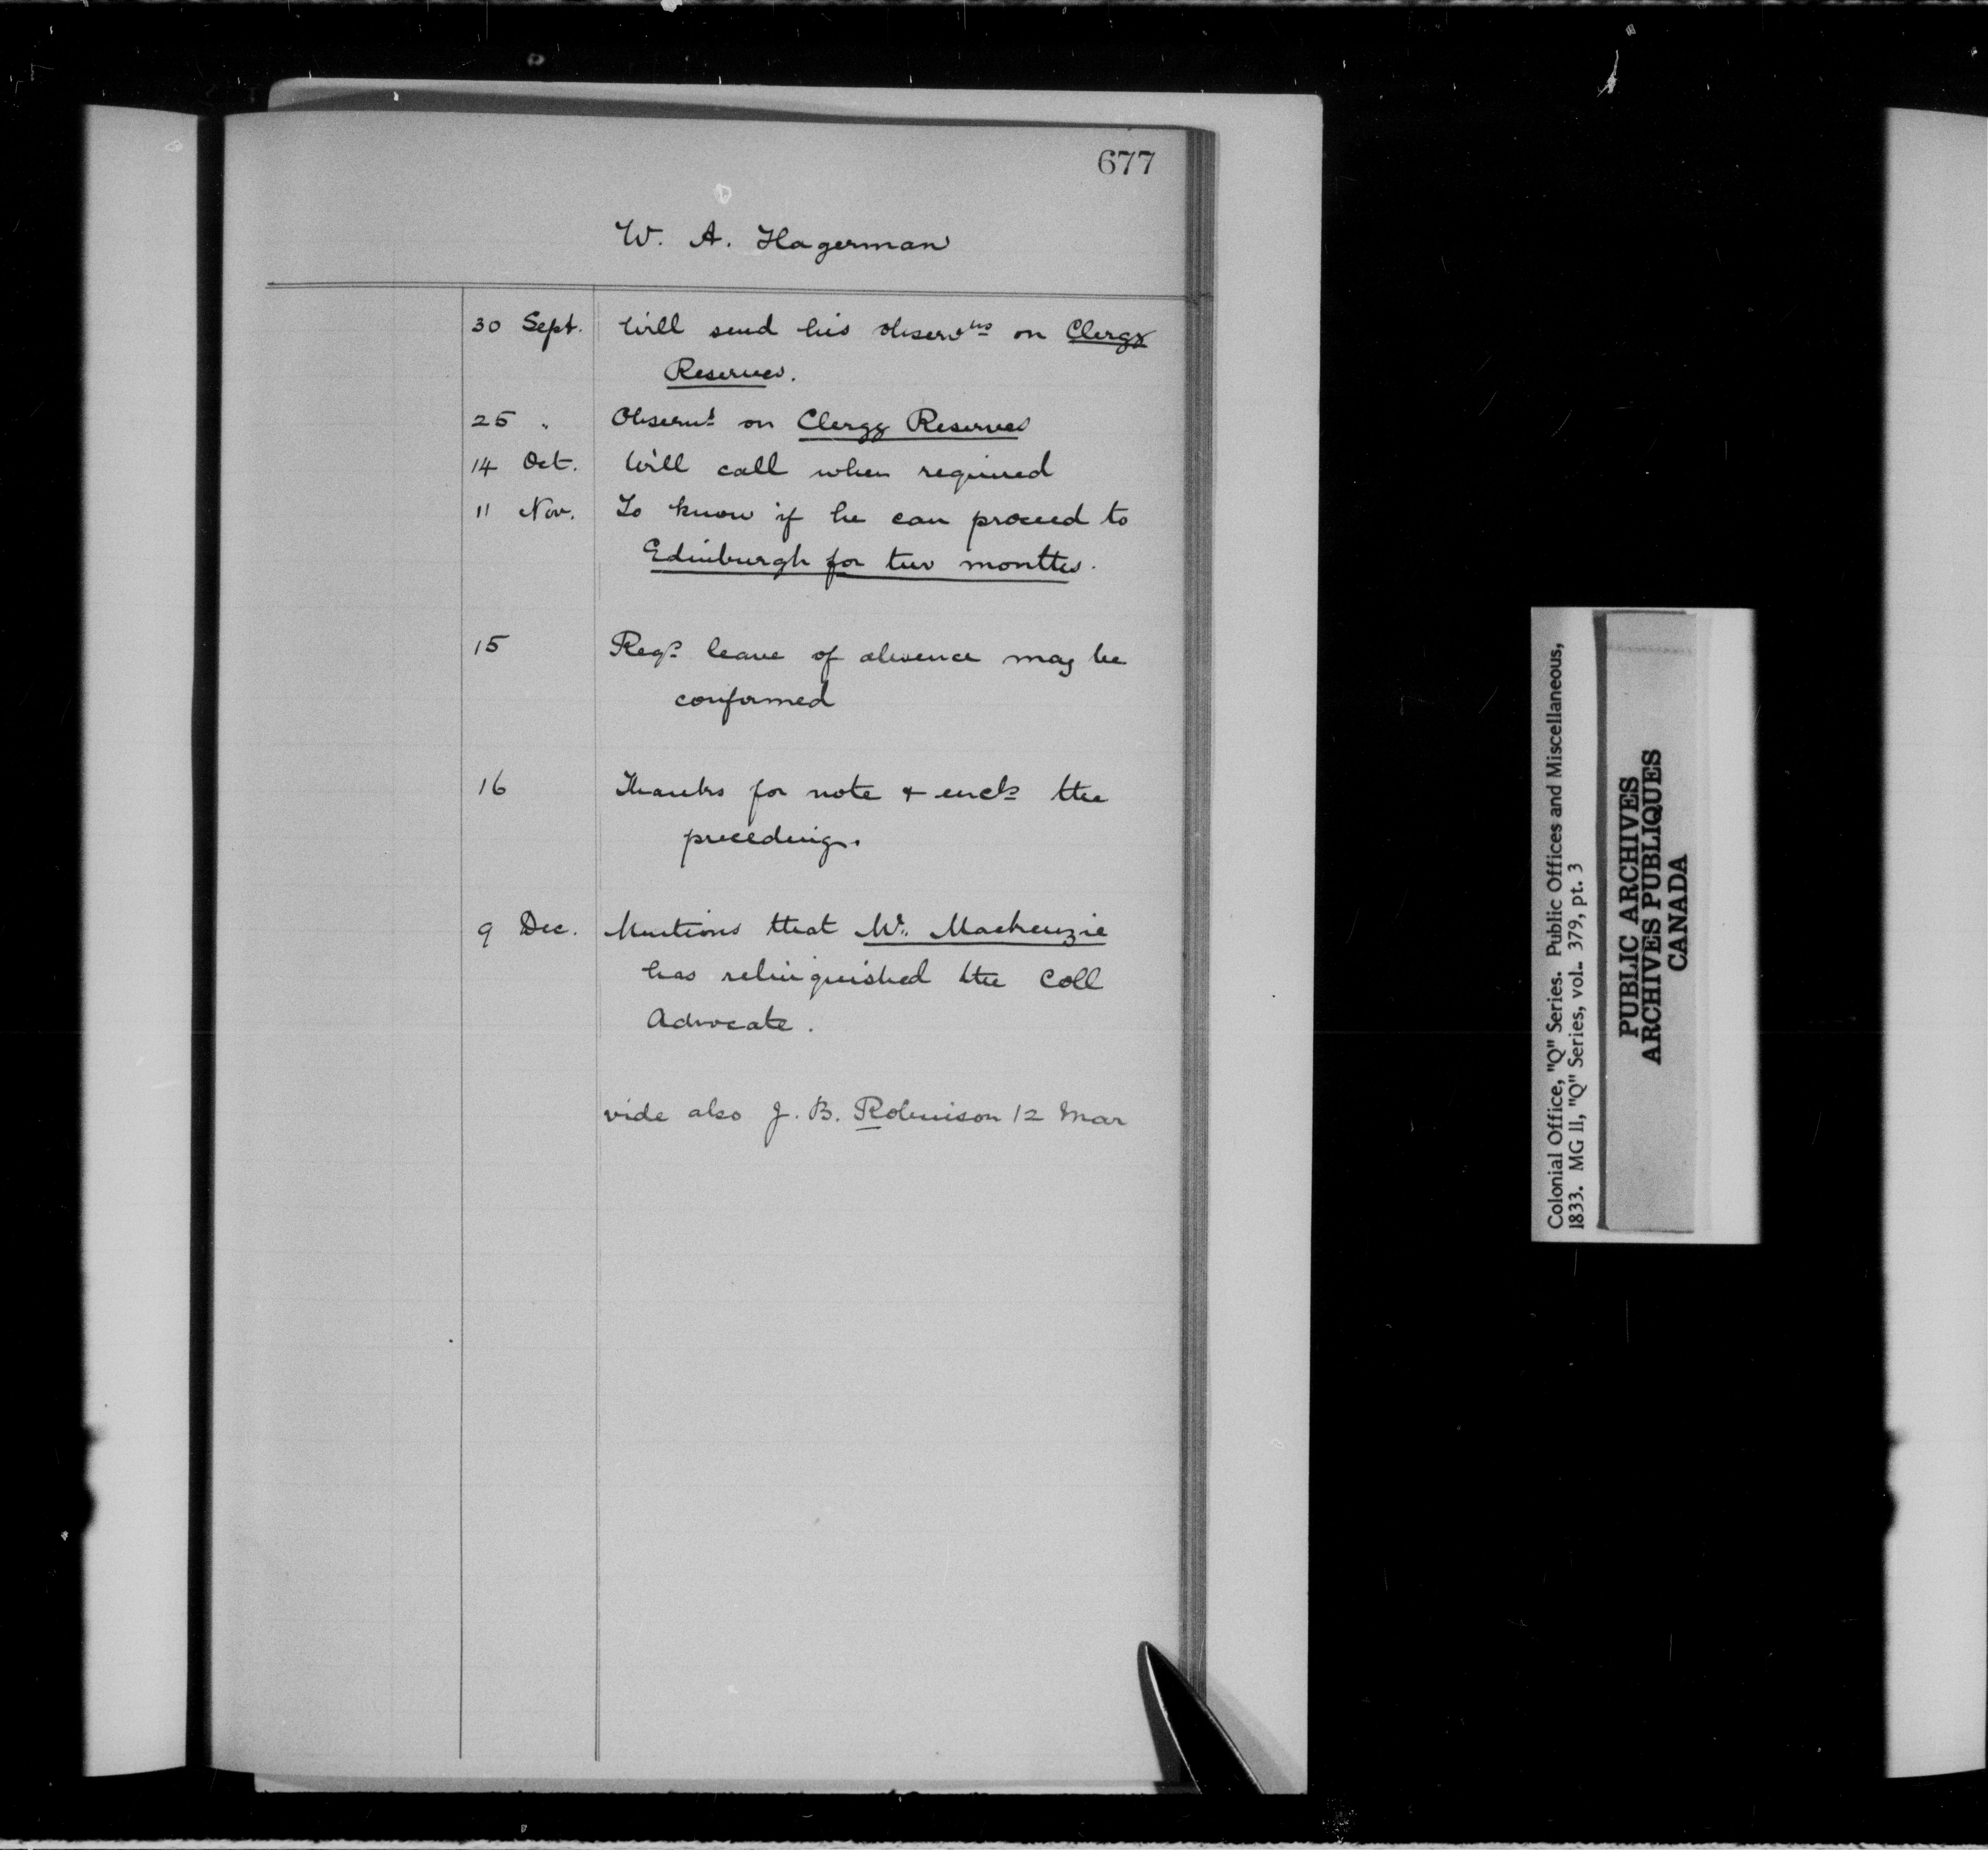 677
W. A. Hagerman
30 Sept. Will send his observns on Clergy
Reserves.
25 " Observns on Clergy Reserves
14 Oct. Will call when required
11 Nov. To know if he can proceed to
Edinburgh for two months.
15 Reqs leave of absence may be
confirmed
16 Thanks for note & encls the
preceding.
9 Dec. Mentions that Mr. Mackenzie
has relinquished the Coll
Advocate.
vide also J. B. Robinson 12 Mar
Colonial Office, "Q" Series. Public Offices and Miscellaneous,
1833. MG 11, "Q" Series, vol. 379, pt. 3
PUBLIC ARCHIVES
ARCHIVES PUBLIQUES
CANADA